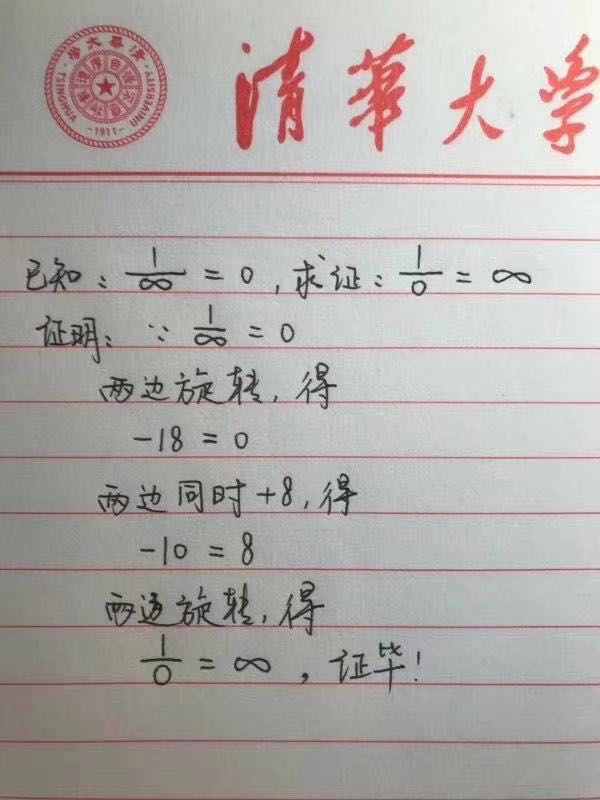 清華大學
TSINGHUA UNIVERSITY
-1911-
已知：1/∞ = 0，求证：1/0 = ∞
证明：∵ 1/∞ = 0
两边旋转，得
-18 = 0
两边同时+8，得
-10 = 8
两边旋转，得
1/0 = ∞，证毕！